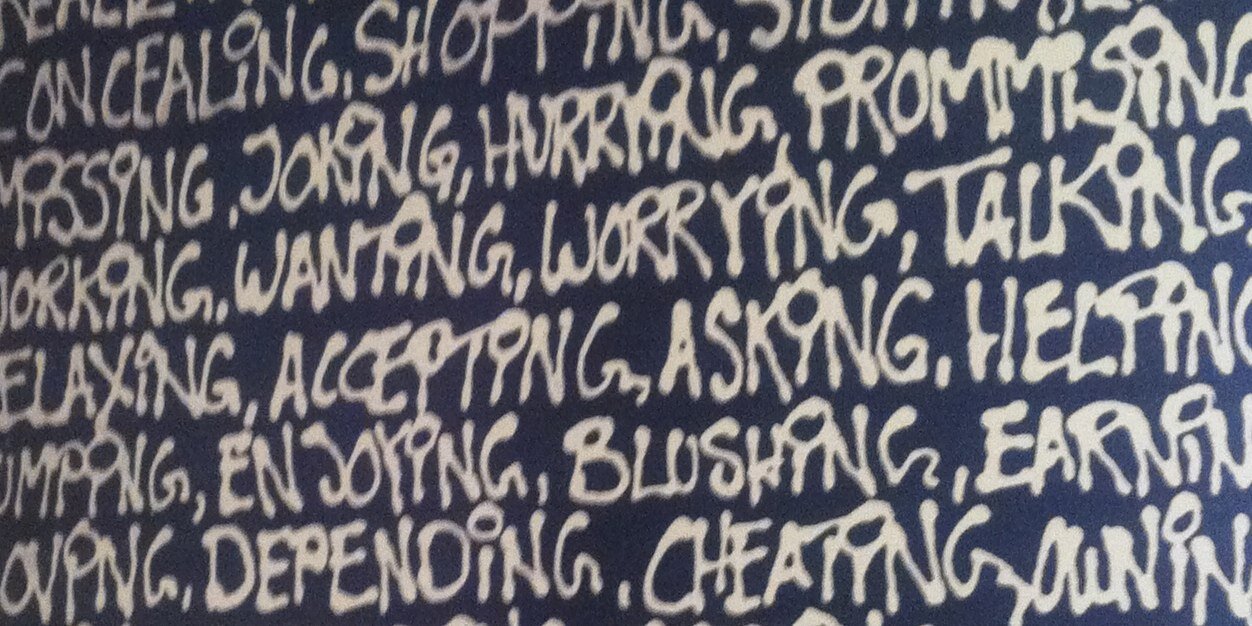 CONCEALING, SHOPPING,
MISSING, JOKING, HURRYING, PROMMISING
WORKING, WANTING, WORRYING, TALKING,
ELAXING, ACCEPTING, ASKING, HELPING
UMPING, ENJOYING, BLUSHING, EARNIN
OVING, DEPENDING, CHEATING, OWNIN